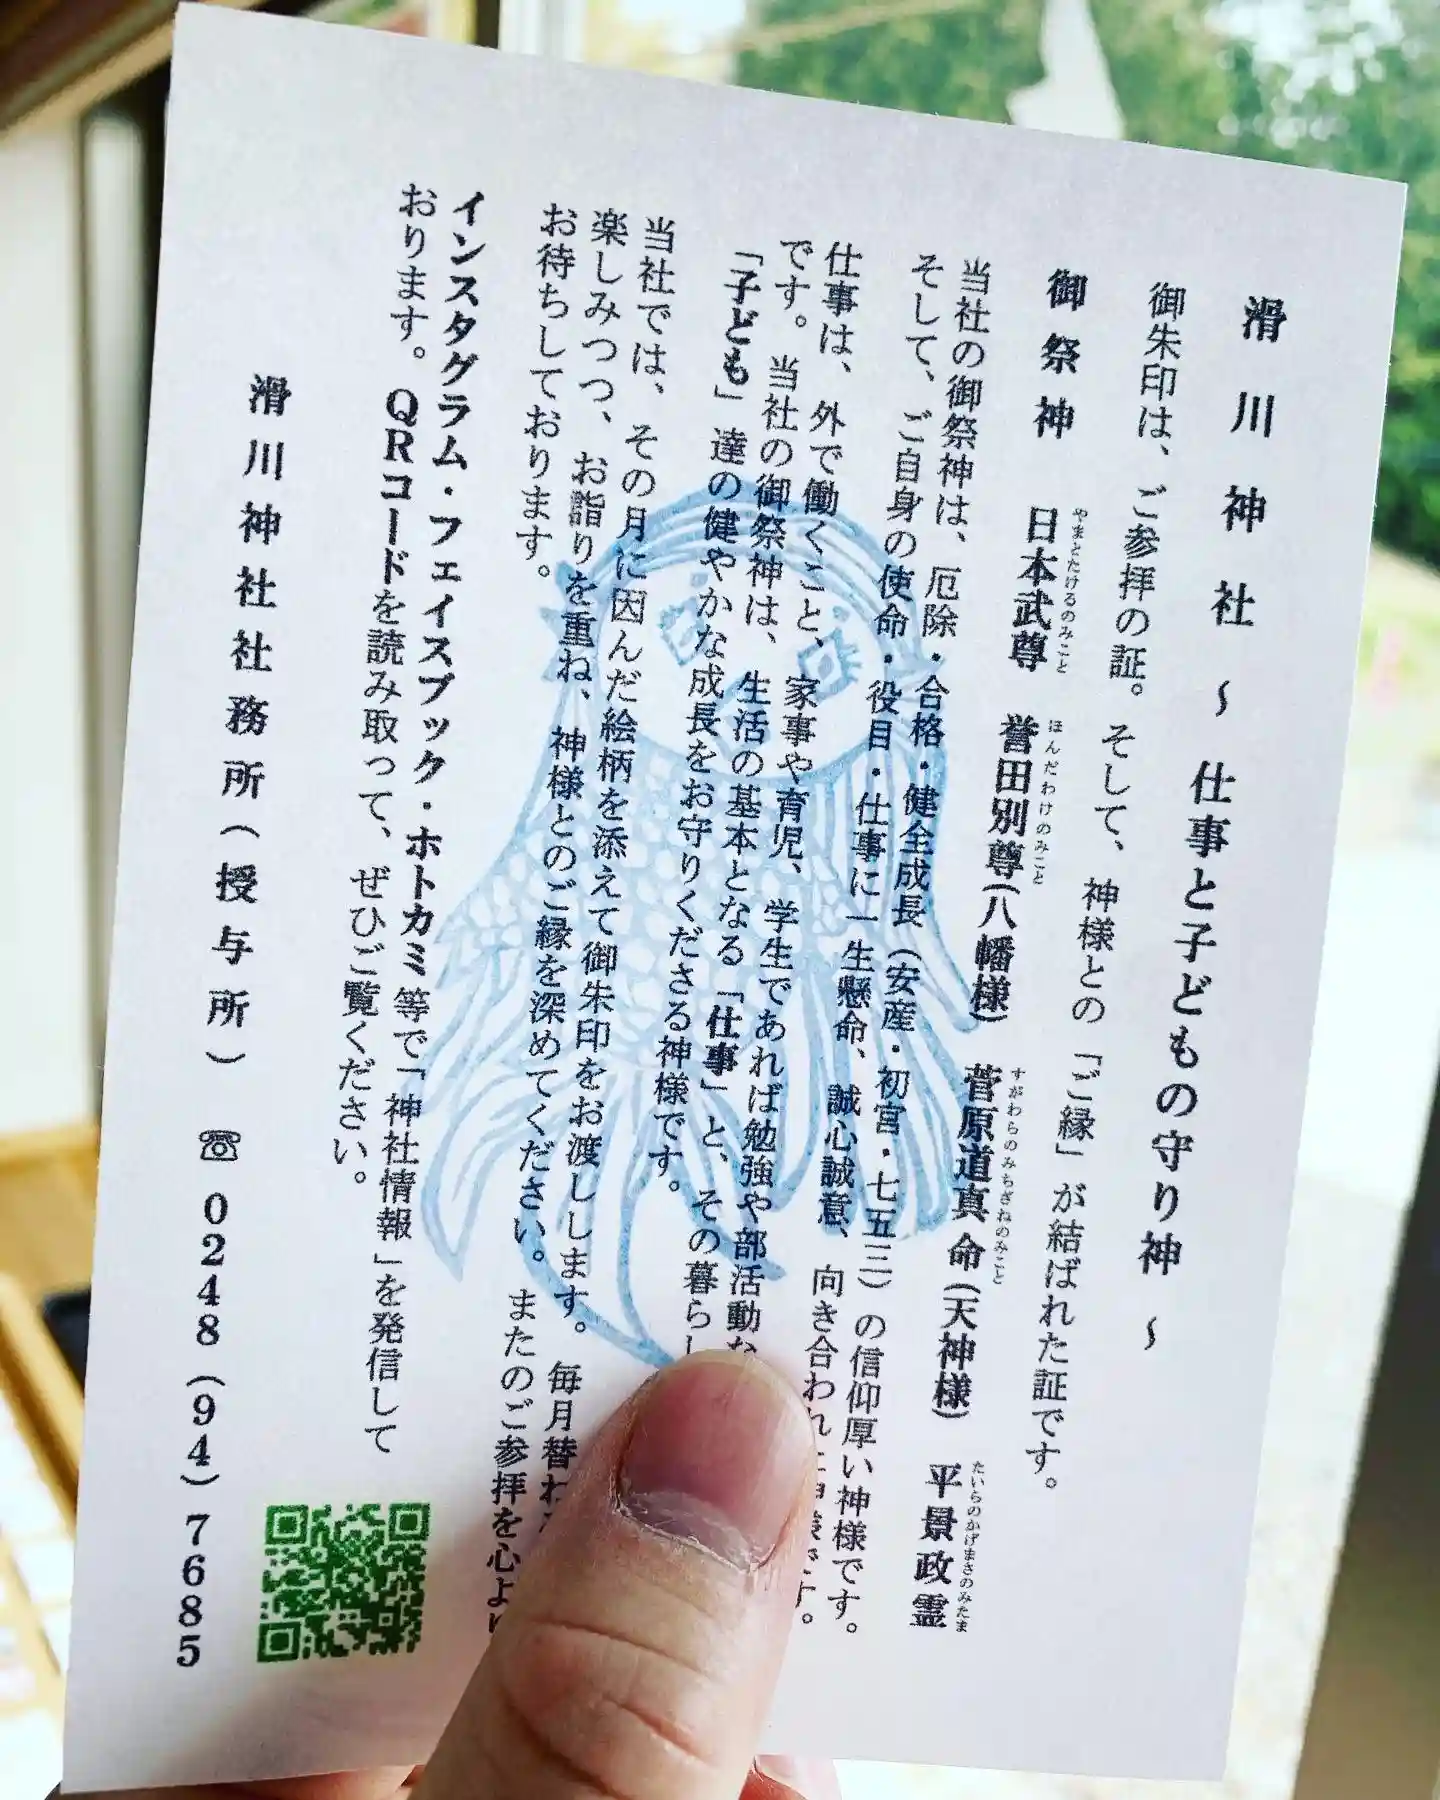 滑川神社 ~ 仕事と子どもの守り神 ~
御朱印は、ご参拝の証。そして、神様との「ご縁」が結ばれた証です。
御祭神 日本武尊 誉田別尊(八幡様) 菅原道真命(天神様) 平景政霊
やまとたけるのみこと ほんだわけのみこと すがわらのみちざねのみこと たいらのかげまさのみたま
当社の御祭神は、厄除・合格・健全成長(安産・初宮・七五三)の信仰厚い神様です。
そして、ご自身の使命・役目・仕事に一生懸命、誠心誠意、向き合われ
仕事は、外で働くこと、家事や育児、学生であれば勉強や部活動な
です。当社の御祭神は、生活の基本となる「仕事」と、その暮らし
「子ども」達の健やかな成長をお守りくださる神様です。
当社では、その月に因んだ絵柄を添えて御朱印をお渡しします。毎月替わ
楽しみつつ、お詣りを重ね、神様とのご縁を深めてください。またのご参拝を心より
お待ちしております。
インスタグラム・フェイスブック・ホトカミ等で「神社情報」を発信して
おります。QRコードを読み取って、ぜひご覧ください。
滑川神社社務所(授与所) ☎ 0248(94)7685